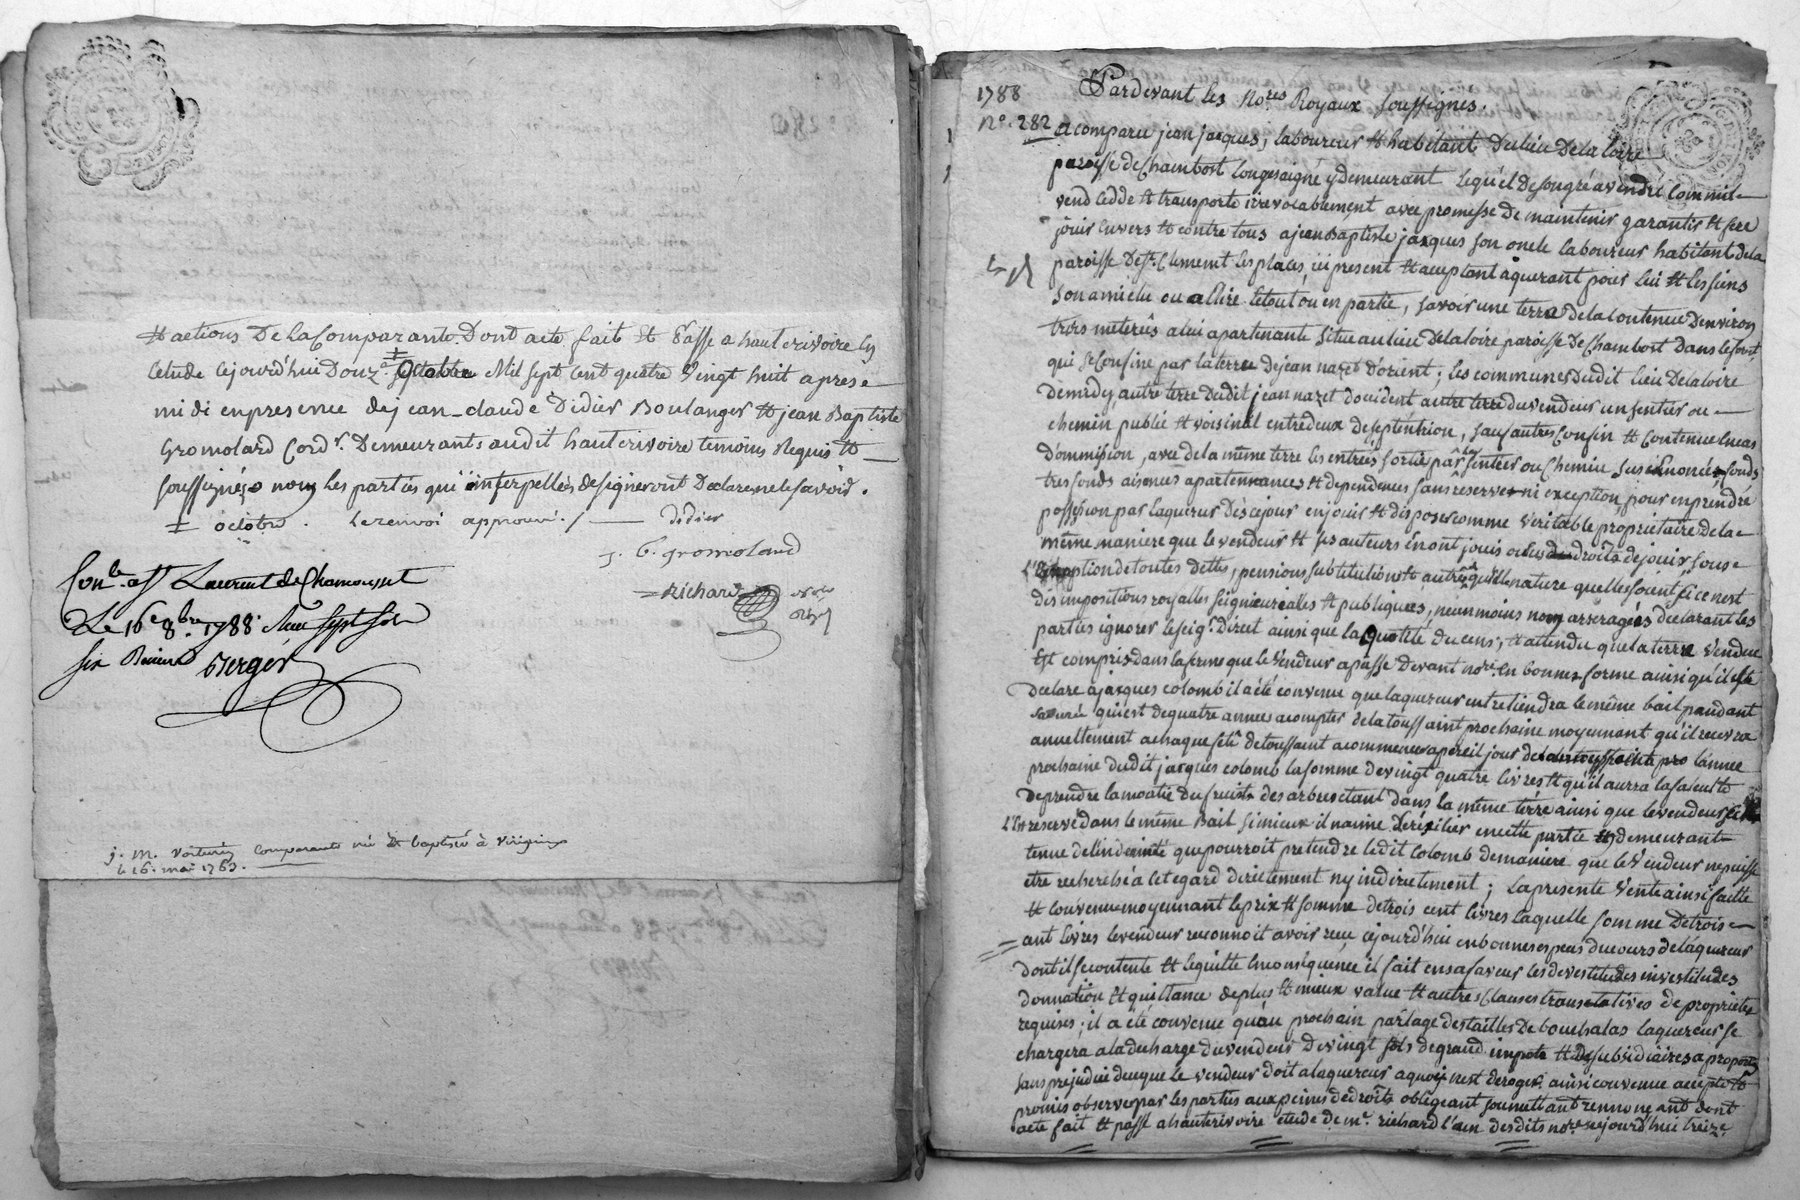 et actions de la Comparante. Dont acte fait et Passé a hauterivoire en
letude cejourd'hui Douze ‡ octobre Mil sept cent quatre Vingt huit apres
midi en presence de jean-claude Didier Boulanger et jean Baptiste
Gromolard Cordr. Demeurants audit hauterivoire temoins Requis et
soussignés non les parties qui interpellées de signer ont Declarés ne le savoir.
‡ octobre. Le renvoi approuvé ./. didier
j. B. gromolard
Richard
Conle. a St Laurent de Chamousset
Le 16e 8.bre 1788. Reçu sept sols
six Deniers Berger
j. M. voiturin comparante née et baptisée à virigneux
le 16. mai 1763.
1788 Pardevant les Nores Royaux soussignés.
No. 282 a comparu jean jacques, laboureur et habitant du lieu de la loire
paroisse de Chambost longesaigne y demeurant lequel de son gré a vendu comme il
vend cedde et transporte irrevocablement avec promesse de maintenir garantir et fere
jouir envers et contre tous a jean Baptiste jacques son oncle laboureur habitant de la
paroisse de St. Clement les places, ici present et acceptant aquerant pour lui et les siens
son ami elu ou a elire le tout ou en partie, savoir une terre de la contenue d'environ
trois meterés a lui apartenante située au lieu de la loire paroisse de Chambost dans le font
qui se confine par la terre de jean nazet d'orient; les communes dudit lieu de la loire
de midy, autre terre dudit jean nazet d'ocident autre terre du vendeur un sentier ou
chemin public et voisinal entredeux de septentrion, sauf autres confins et contenue en cas
d'ommission, avec de la même terre les entrées sortie par les sentier ou chemin susénoncés, fonds
tres fonds aisences apartenances et dependences sans reserve ni exception, pour en prendre
possession par laquereur dès ce jour en jouir et disposer comme veritable proprietaire de la
même maniere que le vendeur et ses auteurs en ont jouis ou eu droits de jouir sous
L'exemption de toutes dettes, pensions substitutions et autres quelle nature quelles soient si ce nest
des impositions royalles seigneurialles et publiques, neunmoins non arreragés declarant les
parties ignorer le seigr. Direct ainsi que la quotité du cens; et attendu que la terre vendue
Est comprise dans la ferme que le Vendeur a passé devant nore. en bonnes forme ainsi qu'il le
declare a jacques colomb il a été convenu que laquereur entretiendra le même bail pandant
sa durée qui est de quatre années a compter de la toussaint prochaine moyennant qu'il recevra
annuellement a chaque fete de toussaint a commencer a pareil jour de l'année
prochaine dudit jacques colomb la somme de vingt quatre livres et qu'il aurra la faculté
de prendre la moitié du fruits des arbres etant dans la même terre ainsi que le vendeur se
l'est reservé dans le même Bail si mieux il n'aime de résilier en cette partie et demeurant
tenue de l'indemnité que pourroit pretendre ledit Colomb de maniere que le Vendeur ne puisse
etre recherché a cet egard directement ny indirectement; La presente Vente ainsi faitte
et convenue moyennant le prix et somme de trois cent livres laquelle somme de trois
cent livres le vendeur reconnoit avoir recu cejourd'hui en bonnes espèces du cours de laquereur
dont il se contente et le quitte en conséquence il fait en sa faveur les devestitudes investitudes
donnation et quittance de plus et mieux value et autres clauses translatives de proprieté
requises; il a été convenu qu'au prochain partage des tailles de bouchalas laquereur se
chargera a la decharge du vendeur de vingt sols de grand impots et de subsidiaires a proport.
sans prejudice de ce que le vendeur doit a laquereur a quoi n'est deroger ainsi convenue accepté et
promis observer par les parties aux peines de droits obligeant soumettant rennonceant dont
acte fait et passé a hauterivoire etude de me. richard l'un desdits nores cejourd'hui treize